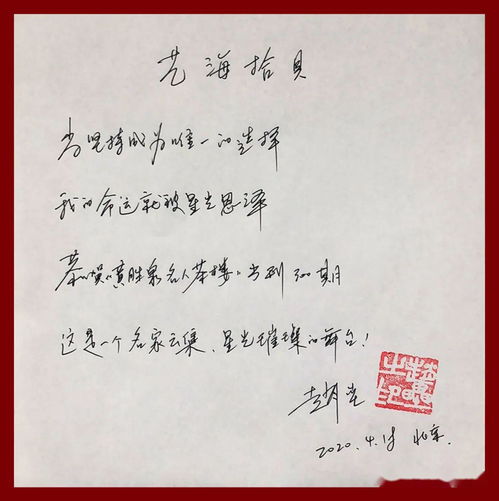 艺海拾贝
当坚持成为唯一的选择
我的命运就被星光恩泽
恭贺《黄胜泉名人茶楼》出到300期
这是一个名家云集、星光璀璨的舞台!
2020.4.18 北京.